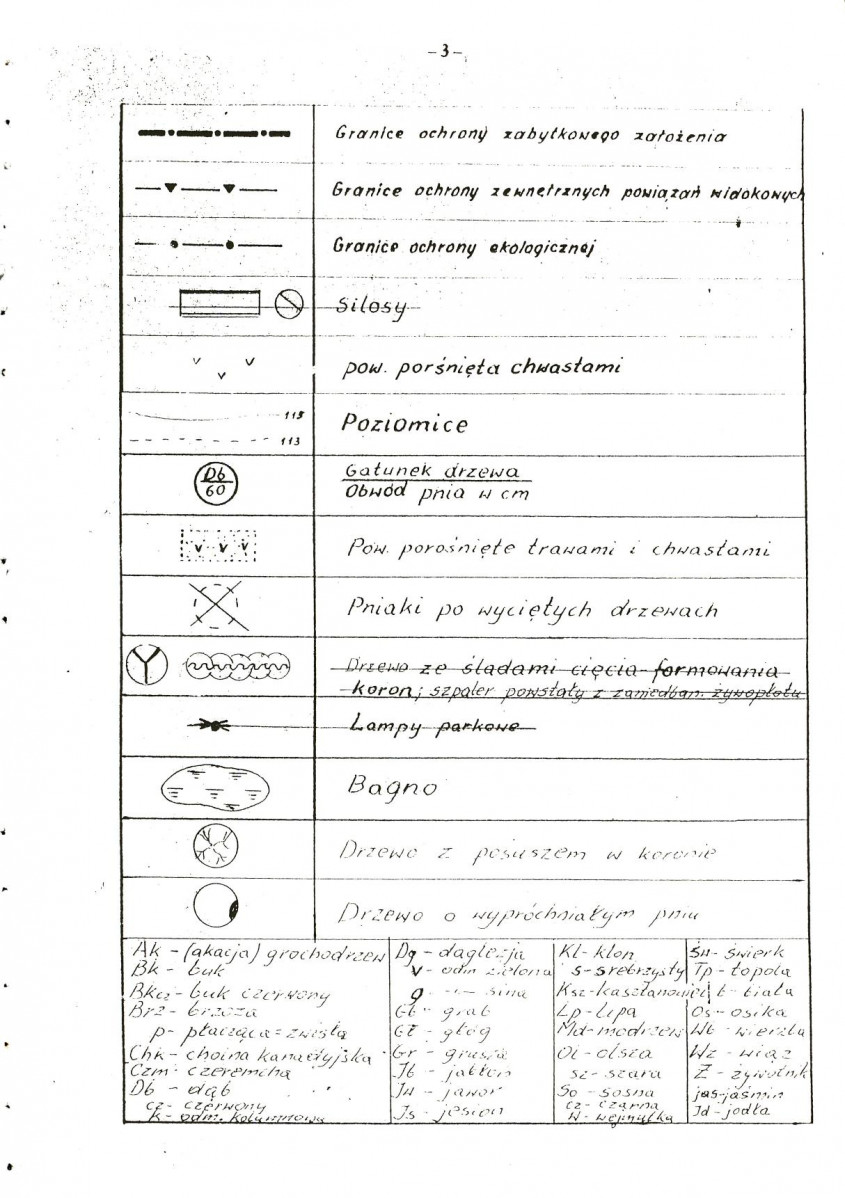 -3-
Granice ochrony zabytkowego założenia
Granice ochrony zewnętrznych powiązań widokowych
Granice ochrony ekologicznej
Silosy
pow. porśnięta chwastami
115
113
Poziomice
Db
60
Gatunek drzewa
Obwód pnia w cm
Pow. porośnięte trawami i chwastami
Pniaki po wyciętych drzewach
Drzewo ze śladami cięcia formowania
koron; szpaler powstały z zaniedban. żywopłotu
Lampy parkowe
Bagno
Drzewo z posuszem w koronie
Drzewo o wypróchniałym pniu
Ak - (akacja) grochodrzew
Bk - buk
Bkcz - buk czerwony
Brz - brzoza
p - płacząca = zwisła
Chk - choina kanadyjska
Czm - czeremcha
Db - dąb
cz - czerwony
k - odm. kolumnowa
Dg - daglezja
v - odm zielona
g - " - sina
Gb - grab
Gł - głóg
Gr - grusza
Jb - jabłoń
Jw - jawor
Js - jesion
Kl - klon
s - srebrzysty
Ksz - kasztanowiec
Lp - lipa
Md - modrzew
Ol - olsza
sz - szara
So - sosna
cz - czarna
w - wejmutka
Św - świerk
Tp - topola
b - biała
Os - osika
Wb - wierzba
Wz - wiąz
Ż - żywotnik
jaś - jaśmin
Jd - jodła